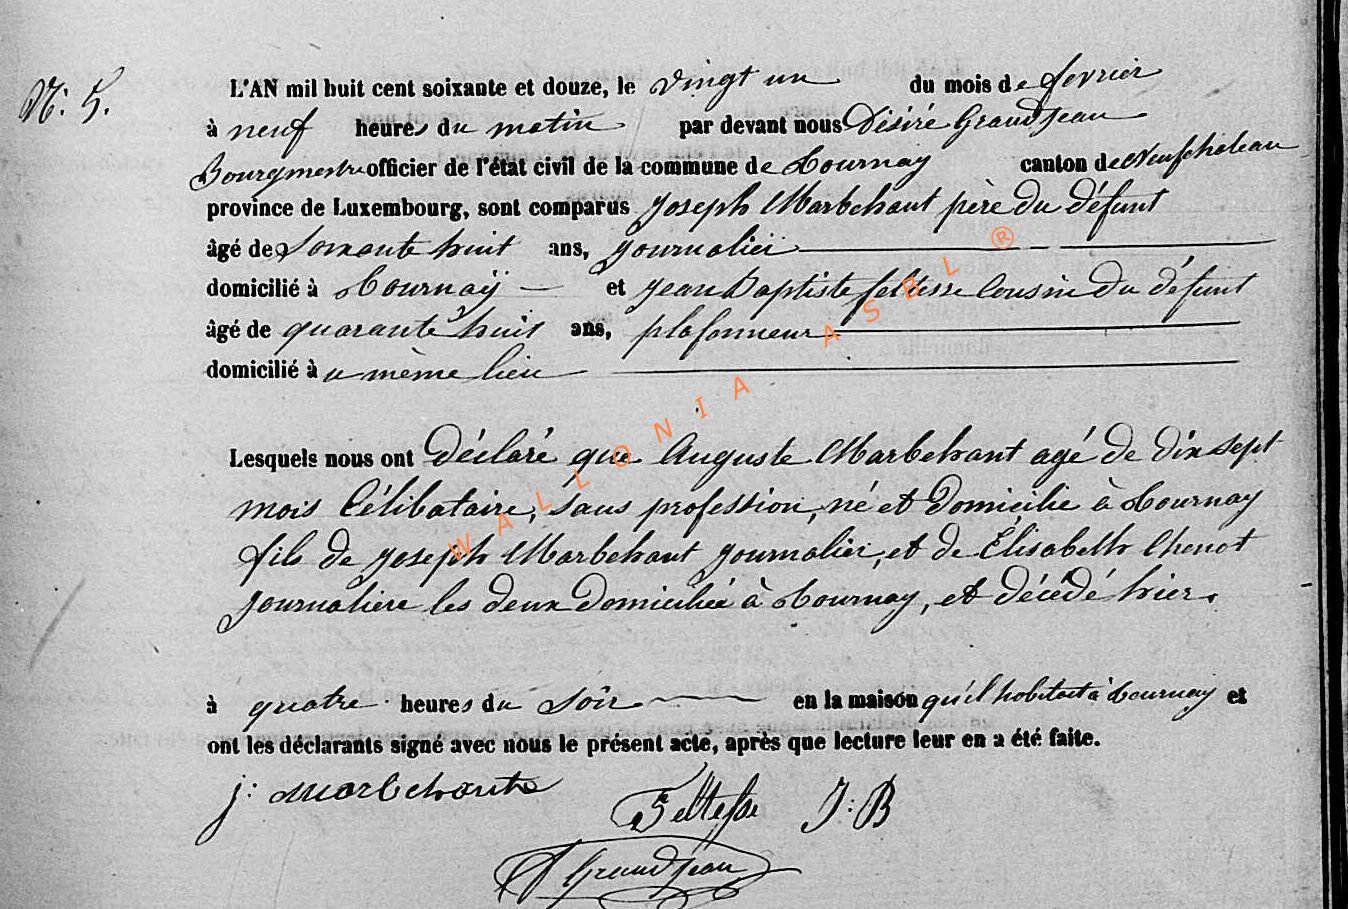 N: 5.
L'AN mil huit cent soixante et douze, le vingt un du mois de fevrier
à neuf heures du matin par devant nous Désiré Grandjean
Bourgmestre officier de l'état civil de la commune de Tournay canton de Neufchateau
province de Luxembourg, sont comparus Joseph Marbehant père du défunt
âgé de Soixante huit ans, journalier
domicilié à Tournaÿ et Jean Baptiste feltesse Cousin du défunt
âgé de quarante huit ans, plafonneur
domicilié au même lieu
Lesquels nous ont déclaré que Auguste Marbehant agé de dix sept
mois Célibataire, sans profession, né et domicilié à Tournay
fils de Joseph Marbehant journalier, et de Élisabeth Chenot
journaliere les deux domicilié à Tournay, et décédé hier.
à quatre heures du Soir en la maison qu'il habitait à Tournay et
ont les déclarants signé avec nous le présent acte, après que lecture leur en a été faite.
j: Marbehant
Feltesse J: B
D Grandjean
WALLONIA ASBL ®